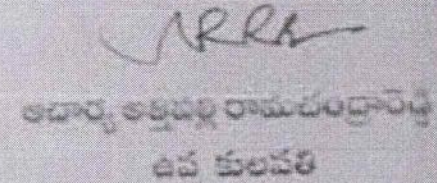 ఆచార్య అక్తిపల్లి రామచంద్రారెడ్డి
ఉప కులపతి